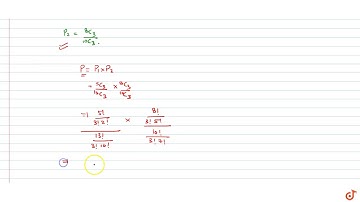 P₂ = 8C₃ / 10C₃.
P = P₁ × P₂
= 5C₃ / 13C₃ × 8C₃ / 10C₃
⇒ (5! / 3! 2!) / (13! / 3! 10!) × (8! / 3! 5!) / (10! / 3! 7!)
⇒